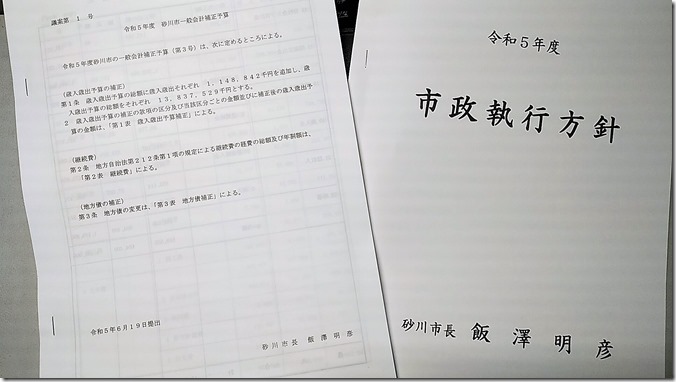 議案第 1 号
令和5年度 砂川市一般会計補正予算
令和5年度砂川市の一般会計補正予算（第3号）は、次に定めるところによる。
（歳入歳出予算の補正）
第1条 歳入歳出予算の総額に歳入歳出それぞれ 1，148，842千円を追加し、歳
入歳出予算の総額をそれぞれ 13，837，529千円とする。
2 歳入歳出予算の補正の款項の区分及び当該区分ごとの金額並びに補正後の歳入歳出予
算の金額は、「第1表 歳入歳出予算補正」による。
（継続費）
第2条 地方自治法第212条第1項の規定による継続費の経費の総額及び年割額は、
「第2表 継続費」による。
（地方債の補正）
第3条 地方債の変更は、「第3表 地方債補正」による。
令和5年6月19日提出
砂川市長 飯澤明彦
令和5年度
市政執行方針
砂川市長 飯澤明彦